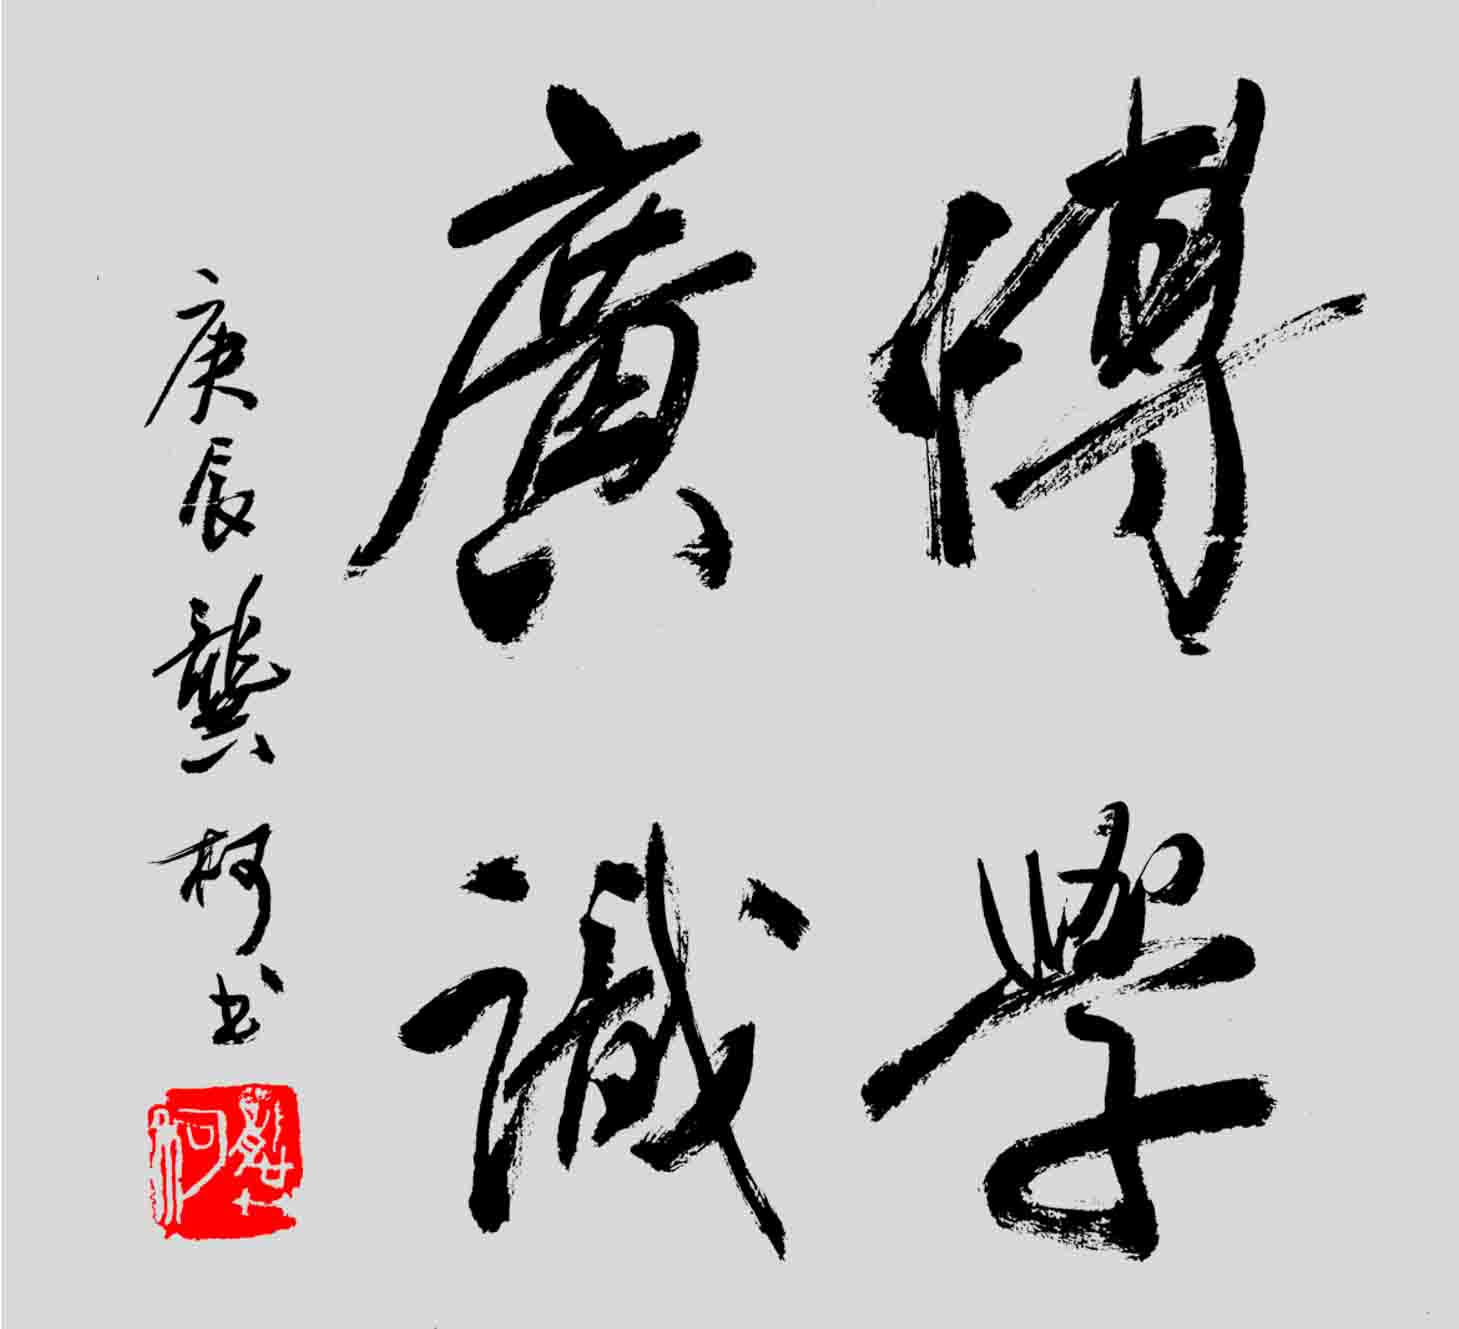 博學
廣識
庚辰龔柯書
龔柯